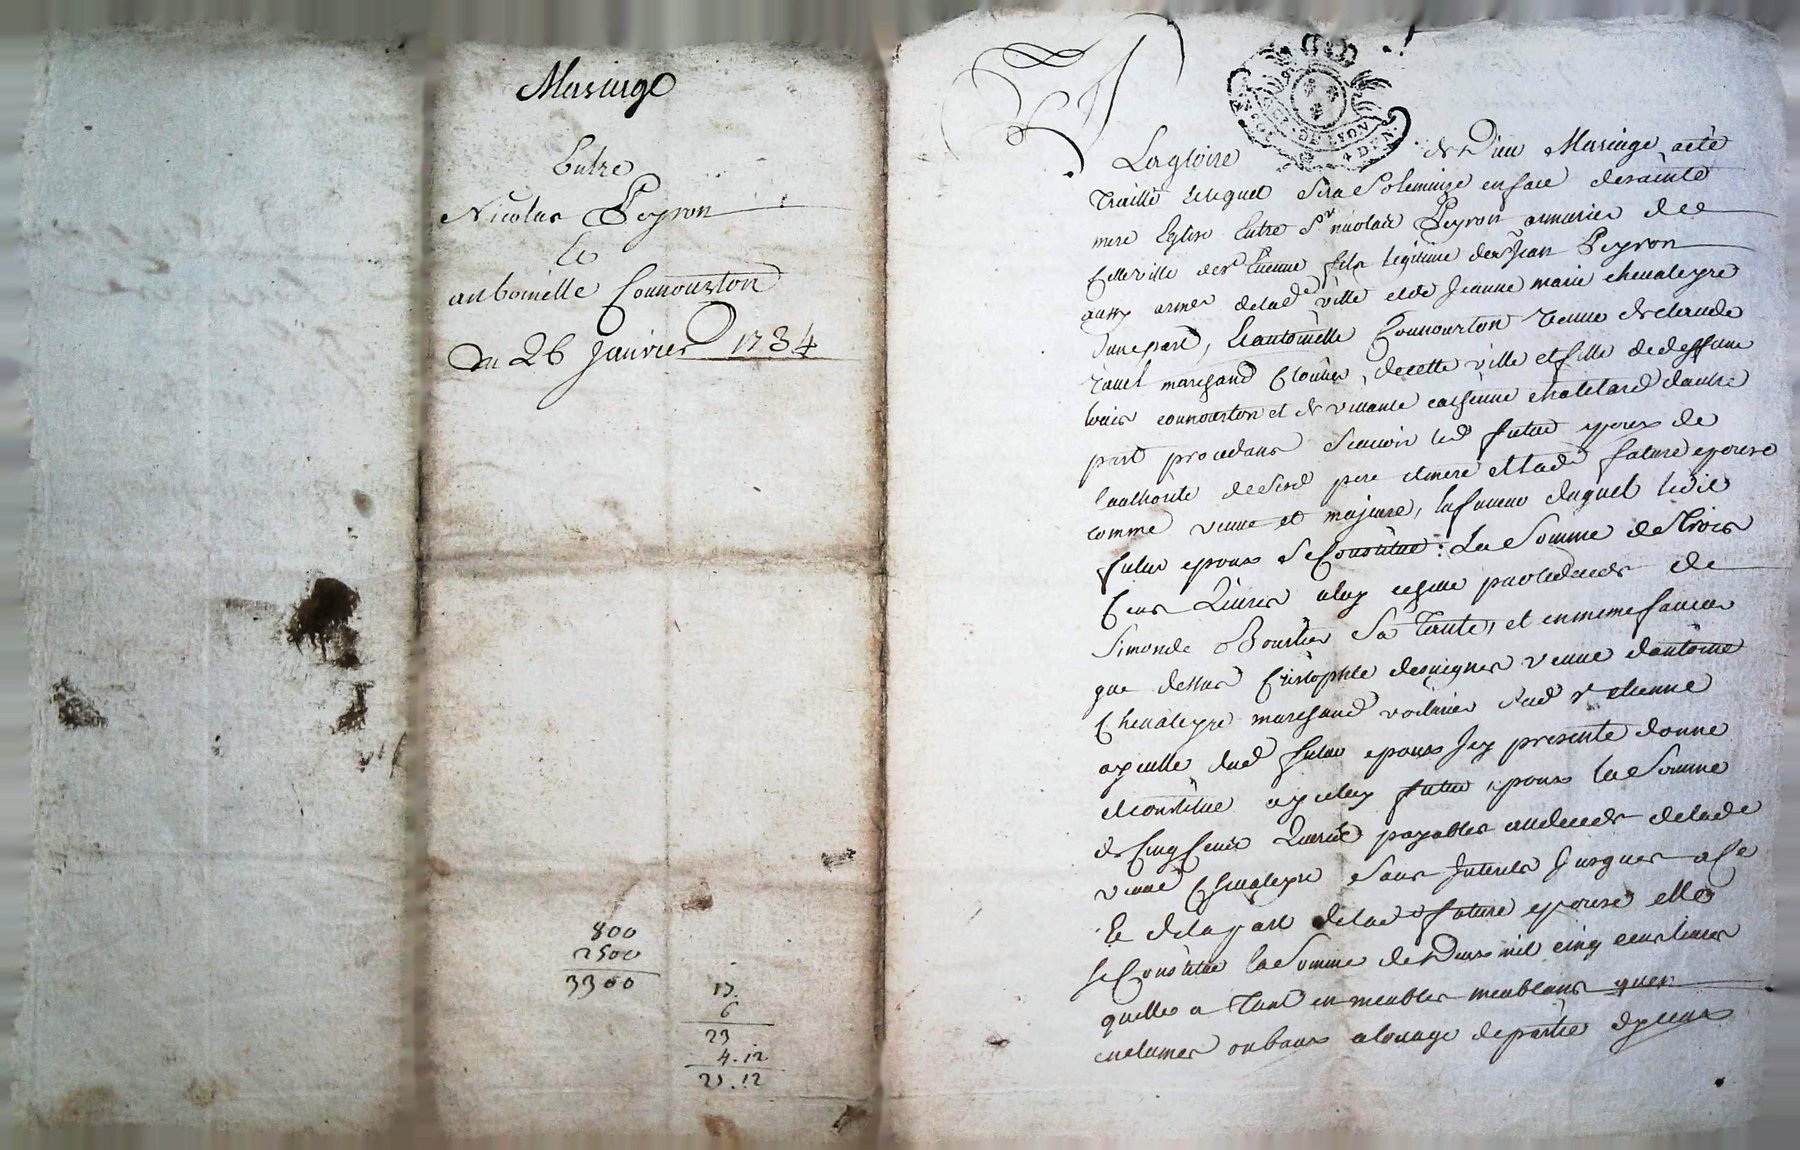 Mariage
Entre
Nicolas Peyron
Et
antoinette Connourton
Du 26 janvier 1784
800
2500
3300
17.
6
23
4.12
2 .12
GEN. DE LYON
4 DEN.
A
La gloire de Dieu Mariage a eté
Traitté lequel sera Solemnize en face de sainte
mere Eglise Entre Sr nicolas Peyron armurier de
Cette ville de st Etienne fils légitime de sr Jean Peyron
aux armes de lad. ville et de Jeanne marie chevaleyre
d'une part, Et antoinette Connourton veuve de claude
ravel marchand Cloutier, de cette ville et fille de deffunt
louis connourton et de vivante catherine chatelard d'autre
part procedans scavoir led futur epoux de
l'authorité de sesd pere et mere et lad future epouse
comme veuve et majeure, en faveur duquel ledit
futur epoux se Constitue la Somme de trois
Cens Livres a luy echue par le deceds de
Simonde Bourlier Sa Tante, et en meme faveur
que dessus Cristophle desvignes veuve d'antoine
Chevaleyre marchand voiturier dud st etienne
ayeulle dud futur epoux Icy presente donne
et constitue ayceluy futur epoux la Somme
de Cinq Cens Livres payables au deceds de lade
veuve Chevaleyre Sans Interets Jusques a ce
Et de la part de lad future epouse elle
se Constitue la Somme de Deux mil cinq cens livres
quelle a Tant en meubles meublans quen
enclumes ou baux a louage de partie dyceux